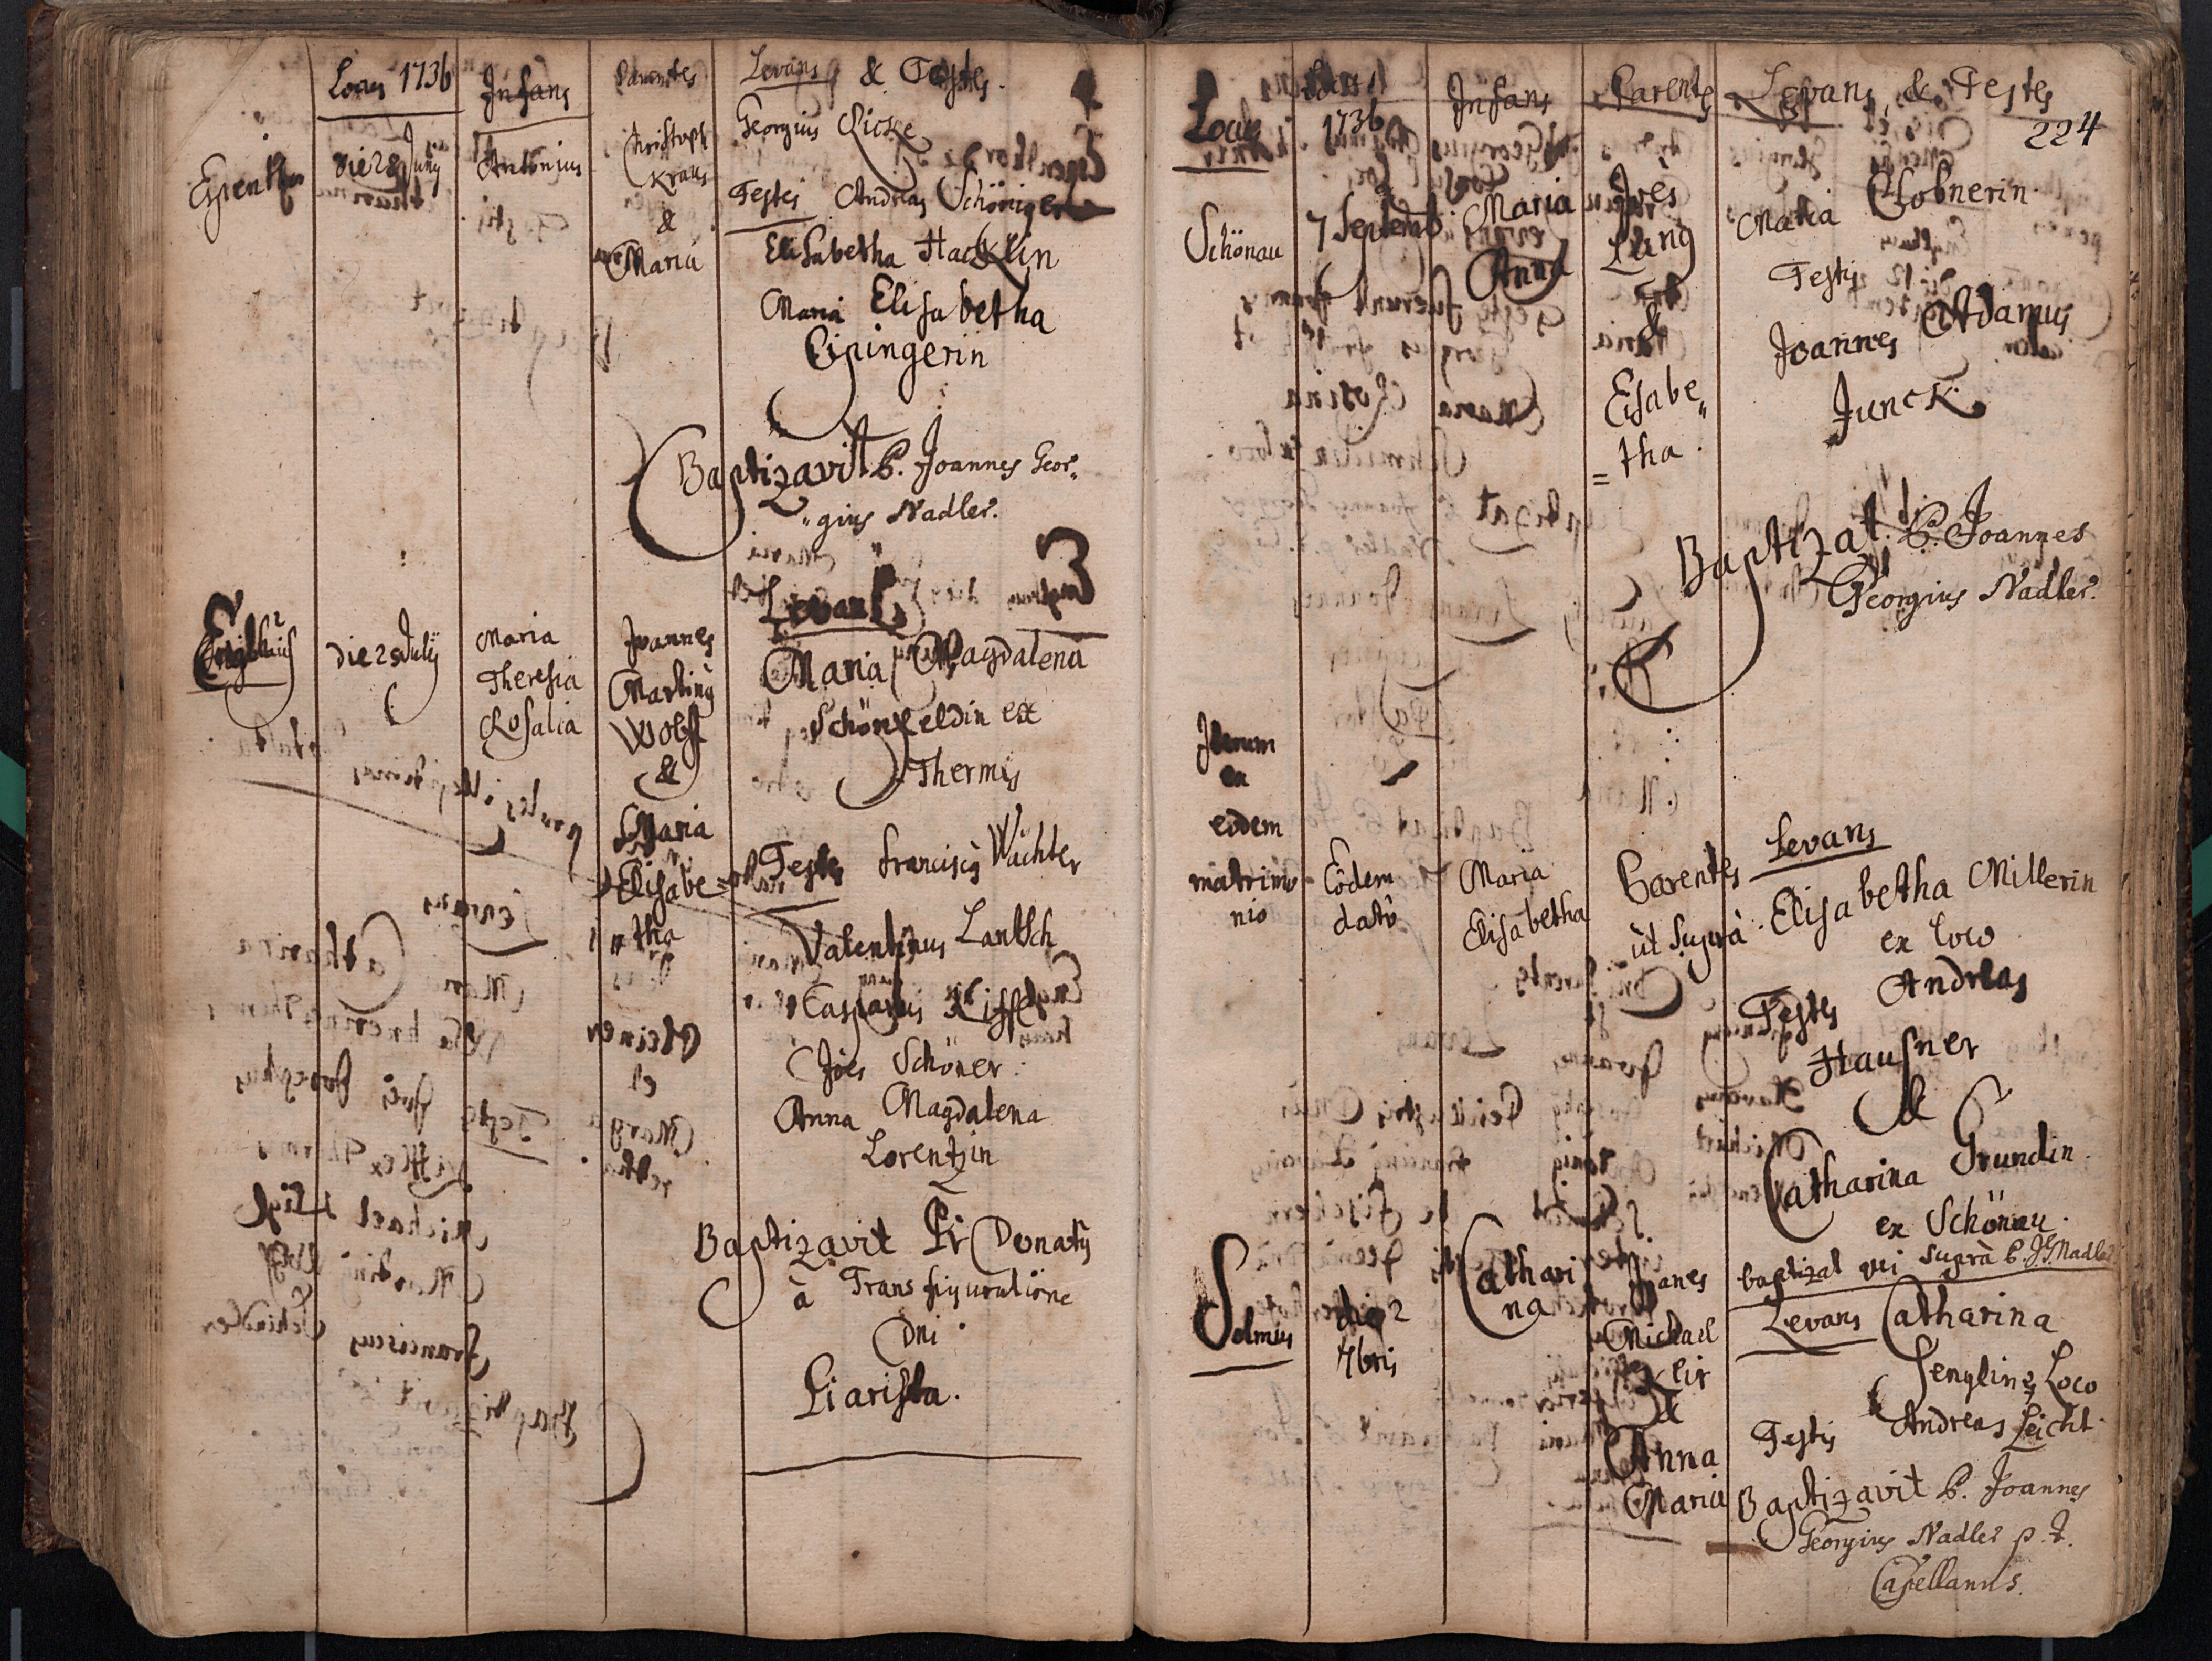 Locus 1736 Infans Parentes Levans & Testes.
Die 28 Junij Antonius Christoph Kraus & Maria
Georgius
Testes Andreas Schöniger
Elisabetha Hacklin
Maria Elisabetha
Baptizavit P. Joannes Geor„
„gius Nadler.
Levans
die 2s Julij
Maria
Theresia
Rosalia
Joannes
Martinỹ
Wolf
&
Maria
Elisabe=
„tha
Maria Magdalena
Schönfeldin ex
Thermis
Testes Franciscỹ Wächter
Valentinus Lantsch
Casparus
Joes Schöner.
Anna Magdalena
Lorentzin
Baptizavit Pr Donatỹ
à Transfiguratione
Dni
Piarista.
Locus 1736 Infans Parentes Levans & Testes
224
Schönau 7 Septemb. Maria
Anna
Joes
Lang
&
Elisabe„
=tha.
Maria
Testis
Joannes Adamus
Junck
Baptizat. P. Joannes
Georgius Nadler.
Iterum
ex
eodem
matrimo
nio
Eôdem
datô
Maria
Elisabetha
Parentes
ùt Suprà
Levans
Elisabetha Millerin
ex loco
Testes Andreas
Hausner
&
Catharina Grundin.
ex Schönau.
baptizat uti suprà P. J.G. Nadler
die 2
7bris
Cathari
na
Joanes
Michael
&
Anna
Maria
Levans Catharina
Loco
Testis Andreas Leicht.
Baptizavit P. Joannes
Georgius Nadler p. t.
Capellanus.